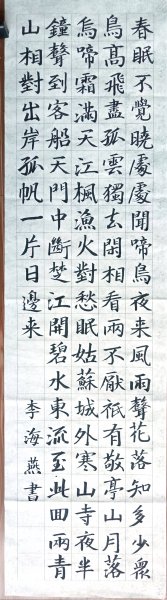 春眠不覺曉處處聞啼鳥夜来風雨聲花落知多少眾
鳥高飛盡孤雲獨去閑相看兩不厭祇有敬亭山月落
烏啼霜滿天江楓漁火對愁眠姑蘇城外寒山寺夜半
鐘聲到客船天門中斷楚江開碧水東流至此囬兩青
山相對出岸孤帆一片日邊来
李海燕書